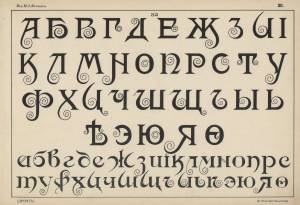 АБВГДЕЖЗШІ
КЛМНОПРСТУ
ФХЦЧШЩЪЫЬ
ѢЭЮЯѲ
абвгдежзшіклмнопрс
туфхцчшщъыьѣэюяѳ